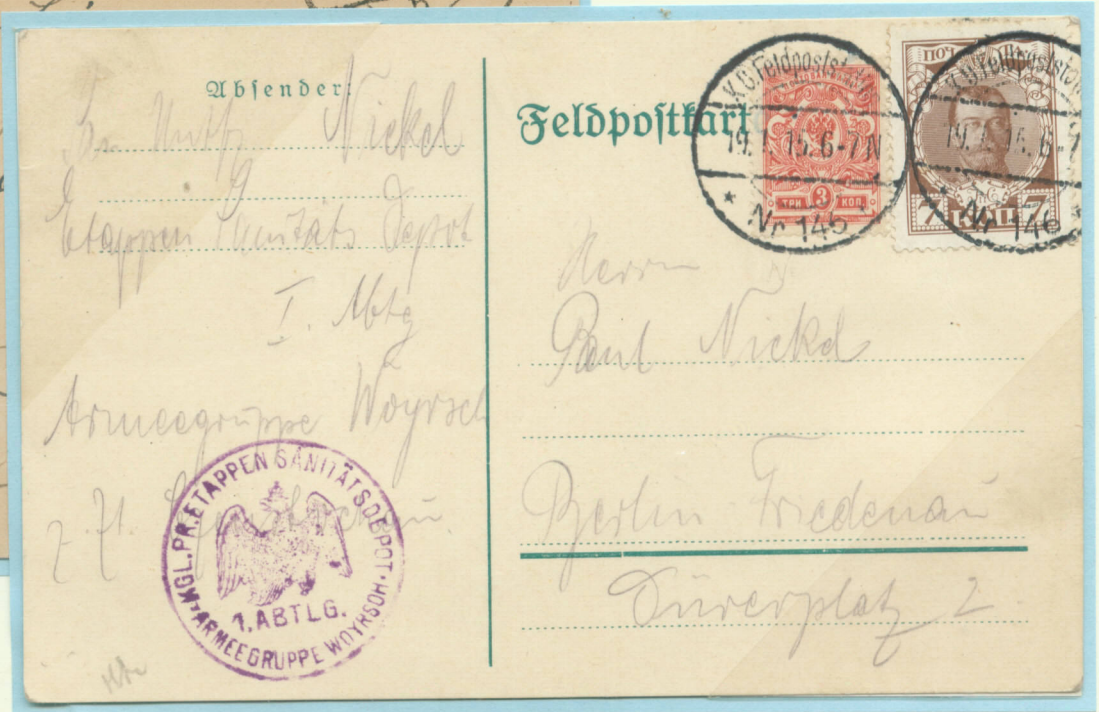 Absender:
Nickel
Etappen Sanitäts Depot
I. Abtg
Armeegruppe Woyrsch
z. Zt.
KGL. PR. ETAPPEN SANITÄTSDEPOT
1. ABTLG.
ARMEEGRUPPE WOYRSCH
Feldpostkart
K.D. Feldpoststat
19.1.15.6-7N
* Nr 146
ТРИ 3 КОП.
K.D. Feldpoststat
19.1.15.6-7
* Nr 146
7 КОП 7
Herrn
Paul Nickel
Berlin Friedenau
Dürerplatz 2